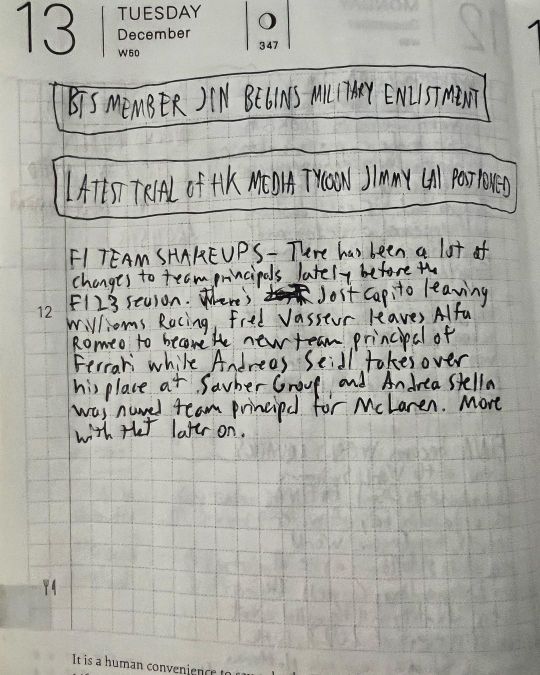 13
TUESDAY
December
W50
347
BTS MEMBER JIN BEGINS MILITARY ENLISTMENT
LATEST TRIAL OF HK MEDIA TYCOON JIMMY LAI POSTPONED
F1 TEAM SHAKEUPS - There has been a lot of
changes to team principals lately before the
F1 23 season. There's Jost Capito leaving
12
Williams Racing, Fred Vasseur leaves Alfa
Romeo to become the new team principal of
Ferrari while Andreas Seidl takes over
his place at Sauber Group, and Andrea Stella
was named team principal for McLaren. More
with that later on.
It is a human convenience to